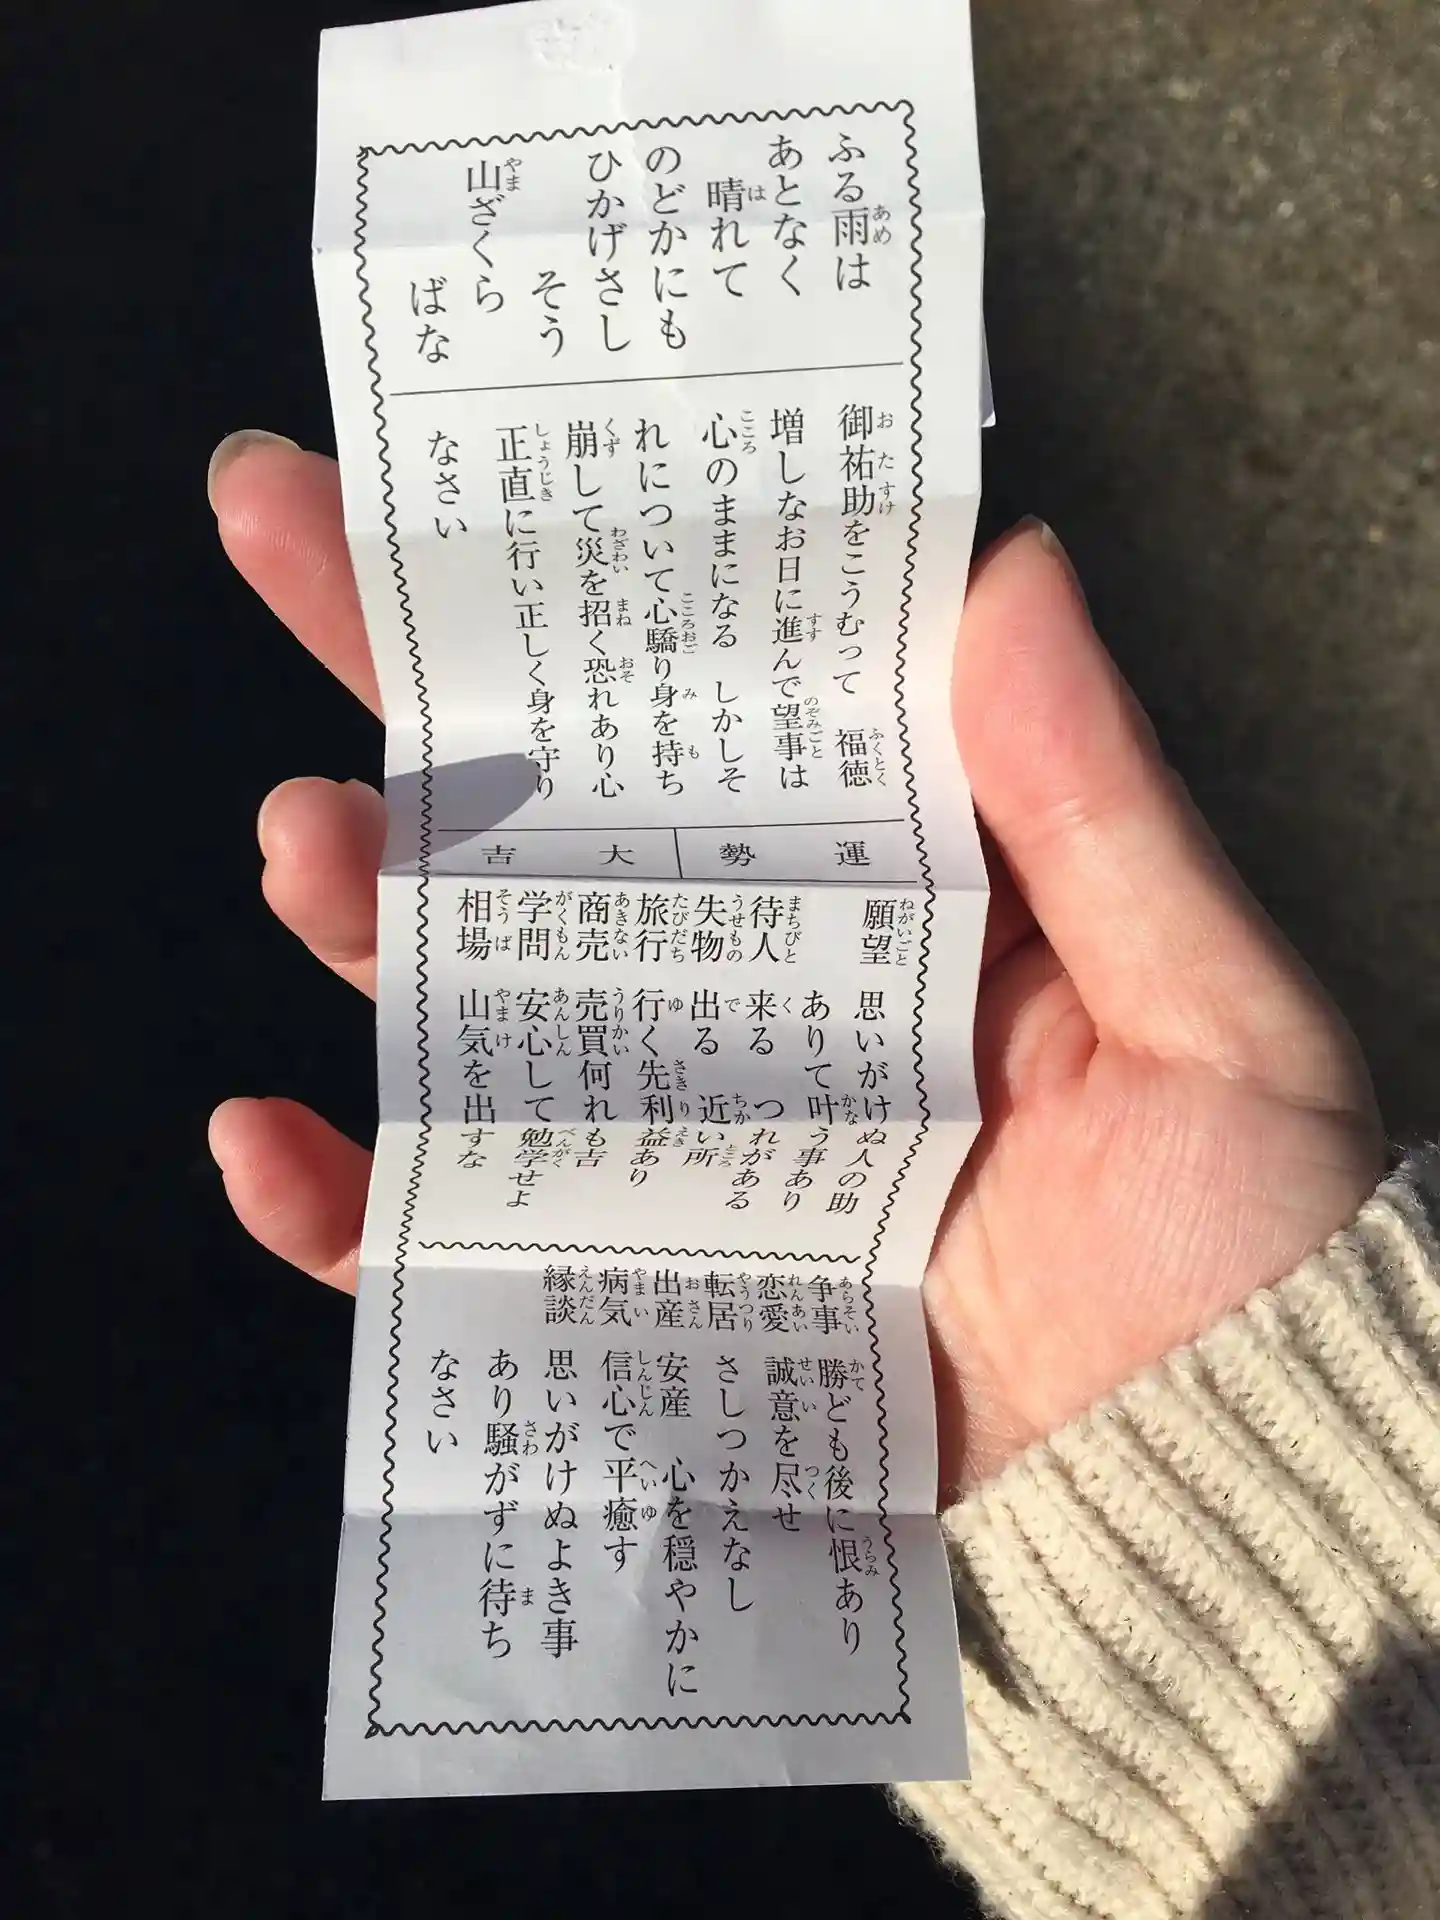 ふる雨は
あとなく
晴れて
のどかにも
ひかげさし
そう
山ざくら
ばな
御祐助をこうむって 福徳
増しなお日に進んで望事は
心のままになる しかしそ
れについて心驕り身を持ち
崩して災を招く恐れあり心
正直に行い正しく身を守り
なさい
運勢 大吉
願望 思いがけぬ人の助
ありて叶う事あり
待人 来る つれがある
失物 出る 近い所
旅行 行く先利益あり
商売 売買何れも吉
学問 安心して勉学せよ
相場 山気を出すな
争事 勝ども後に恨あり
恋愛 誠意を尽せ
転居 さしつかえなし
出産 安産 心を穏やかに
病気 信心で平癒す
縁談 思いがけぬよき事
あり騒がずに待ち
なさい